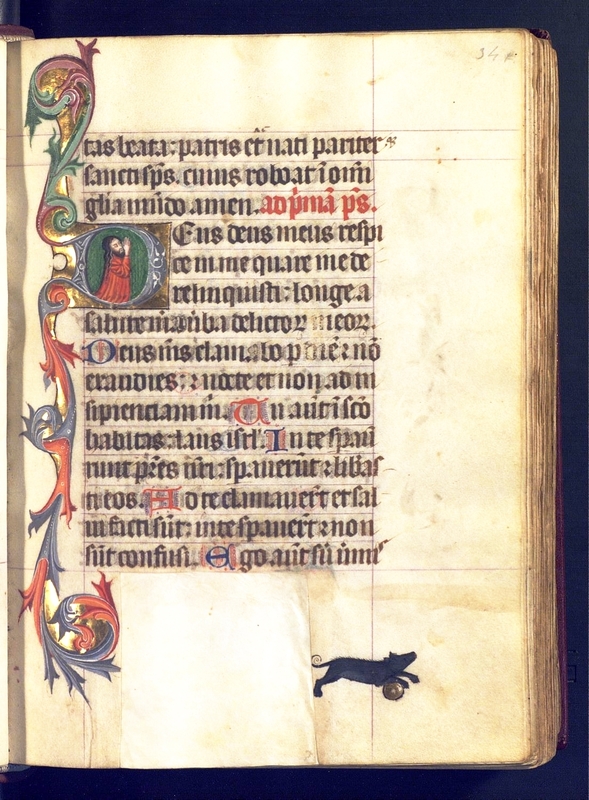 34
tas beata: patris et nati pariter
sancti sp̄s. cuius roboat ī om̄i
gl̄ia mūdo amen. ad p̄mā p̄s.
Deus deus meus respi
ce in me quare me de
relinquisti: longe a
salute m̄a v̄ba delictoꝝ meoꝝ.
Deus m̄s clamabo p̄ diē ⁊ nō
exaudies: ⁊ nocte et non ad in
sipienciam m̄. Tu aut̄ ī scō
habitas: laus isrl̄. In te sp̄aue
runt p̄res n̄ri: sp̄auerūt ⁊ lib̄as
ti eos. Ad te clamauer̄t et sal
ui facti sūt: in te sp̄auer̄t ⁊ non
sūt confusi. Ego aūt sū